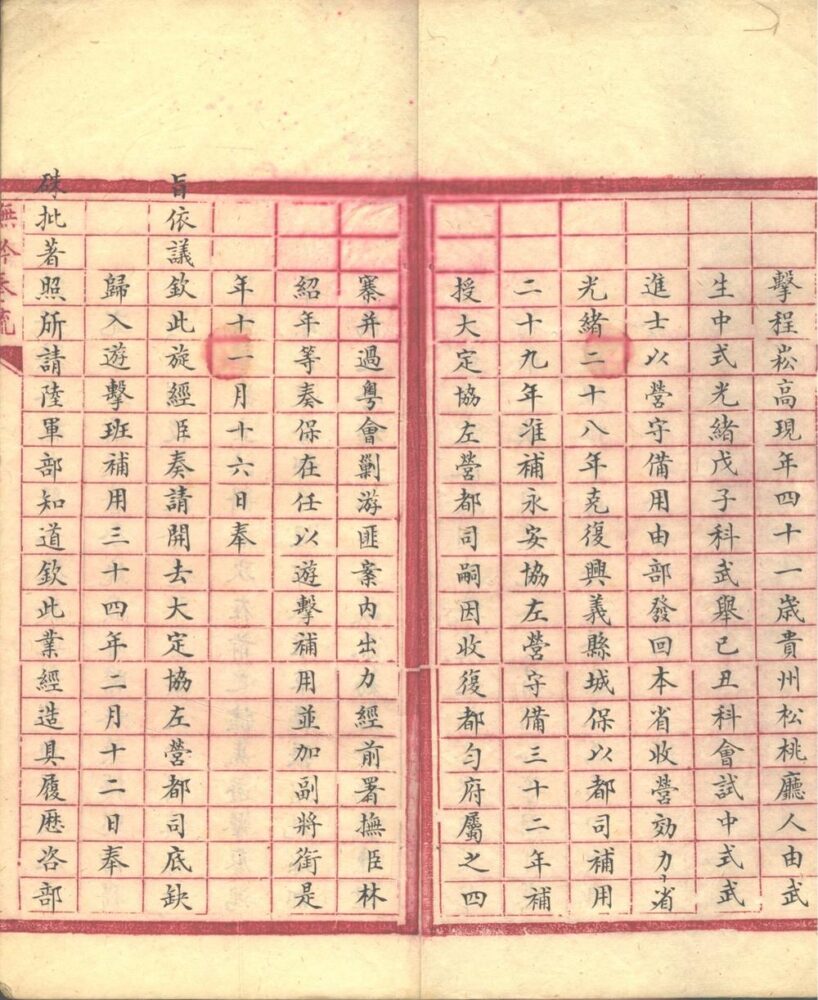 擊程崧高現年四十一歲貴州松桃廳人由武
生中式光緒戊子科武舉已丑科會試中式武
進士以營守備用由部發回本省收營効力省
光緒二十八年克復興義縣城保以都司補用
二十九年准補永安協左營守備三十二年補
授大定協左營都司嗣因收復都勻府屬之四
寨并過粵會剿游匪案內出力經前署撫臣林
紹年等奏保在任以遊擊補用並加副將銜是
年十一月十六日奉
旨依議欽此旋經臣奏請開去大定協左營都司底缺
歸入遊擊班補用三十四年二月十二日奉
硃批著照所請陸軍部知道欽此業經造具履歷咨部
撫黔奏疏